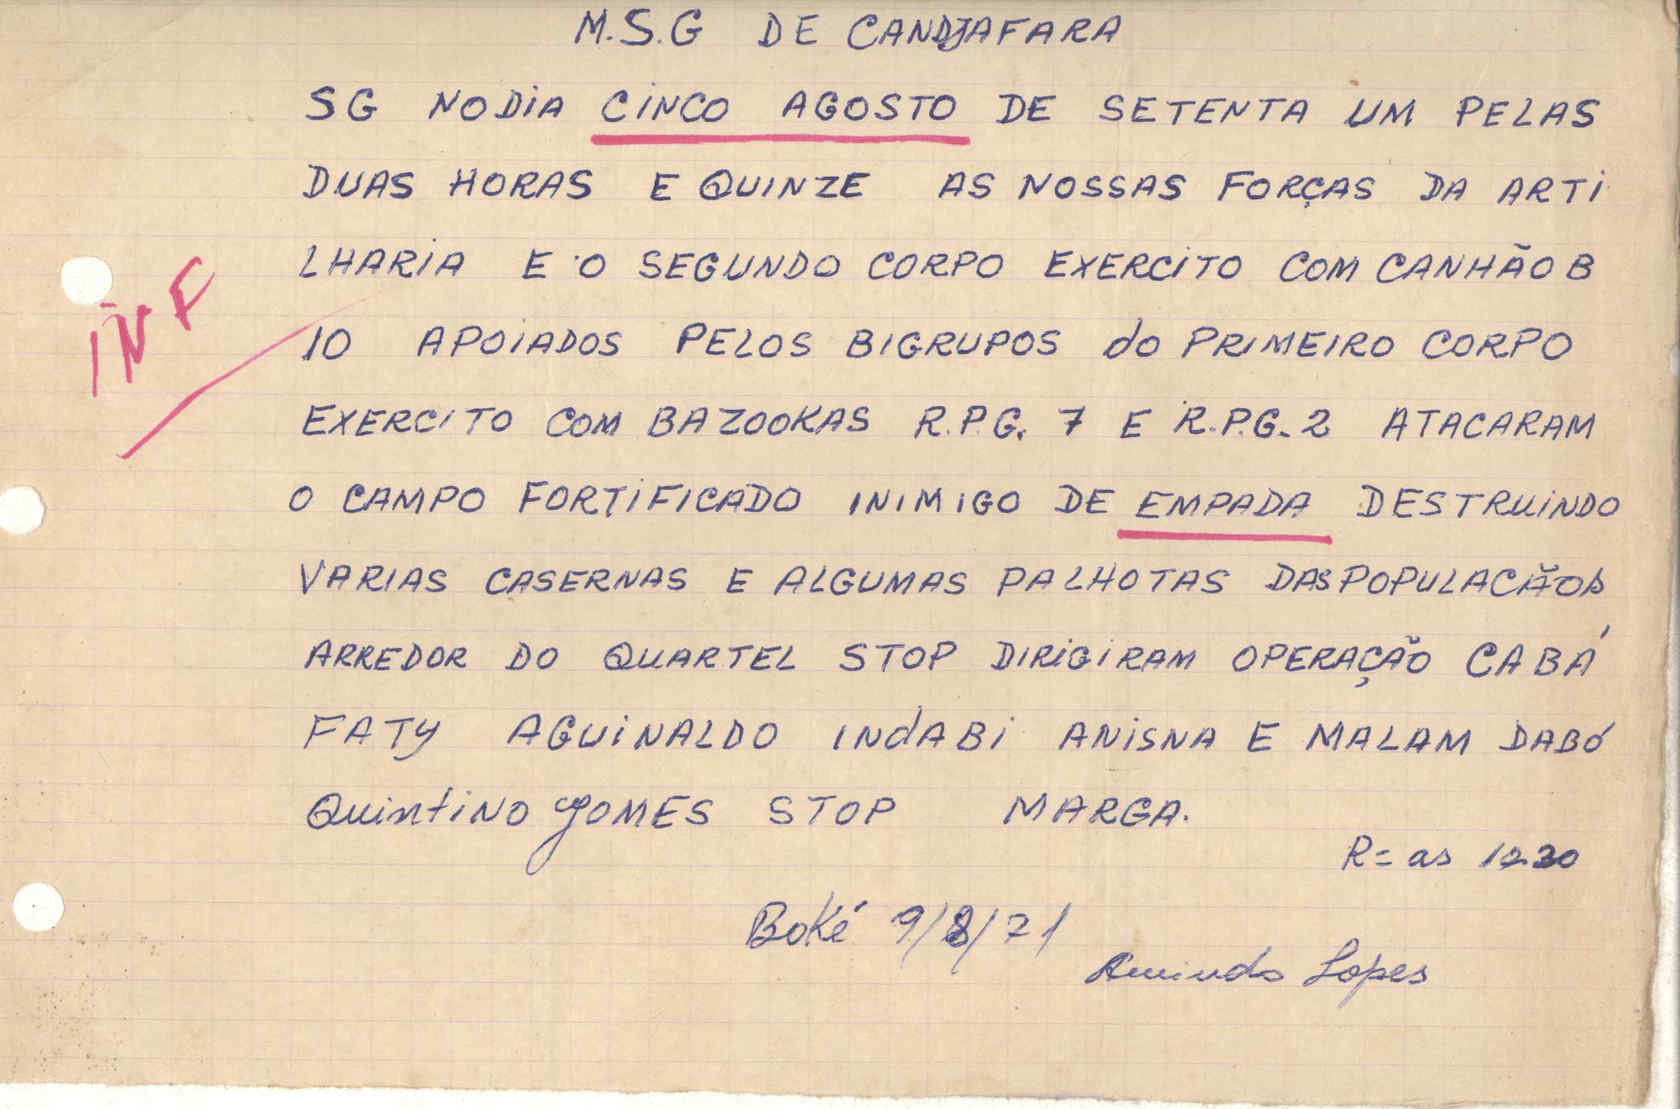 M.S.G DE CANDJAFARA
SG NO DIA CINCO AGOSTO DE SETENTA UM PELAS
DUAS HORAS E QUINZE AS NOSSAS FORÇAS DA ARTI
LHARIA E O SEGUNDO CORPO EXERCITO COM CANHÃO B
INF
10 APOIADOS PELOS BIGRUPOS do PRIMEIRO CORPO
EXERCITO COM BAZOOKAS R.P.G. 7 E R.P.G. 2 ATACARAM
O CAMPO FORTIFICADO INIMIGO DE EMPADA DESTRUINDO
VARIAS CASERNAS E ALGUMAS PALHOTAS DAS POPULACÃOS
ARREDOR DO QUARTEL STOP DIRIGIRAM OPERAÇÃO CABÁ
FATY AGUINALDO INDABI ANISNA E MALAM DABÓ
QUINTINO GOMES STOP MARGA.
R= as
Boké 9/8/71
Lopes